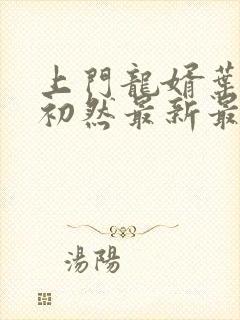 上門龍婿葉
初然最新最
湯陽